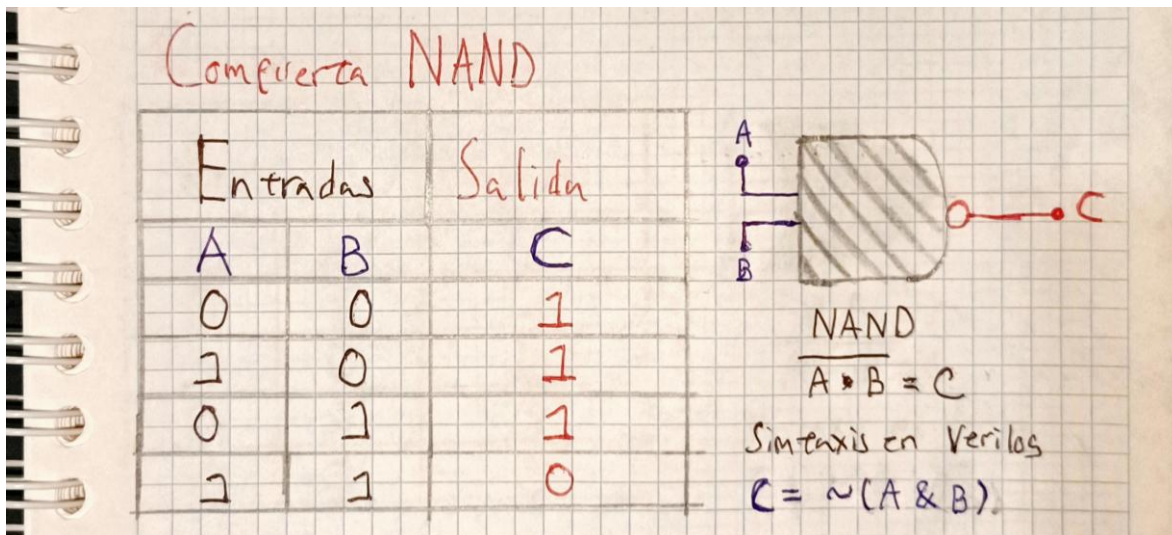 Compuerta NAND
Entradas Salida
A B C
0 0 1
1 0 1
0 1 1
1 1 0
A
B
C
NAND
A • B = C
Sintaxis en Verilog
C = ~(A & B)